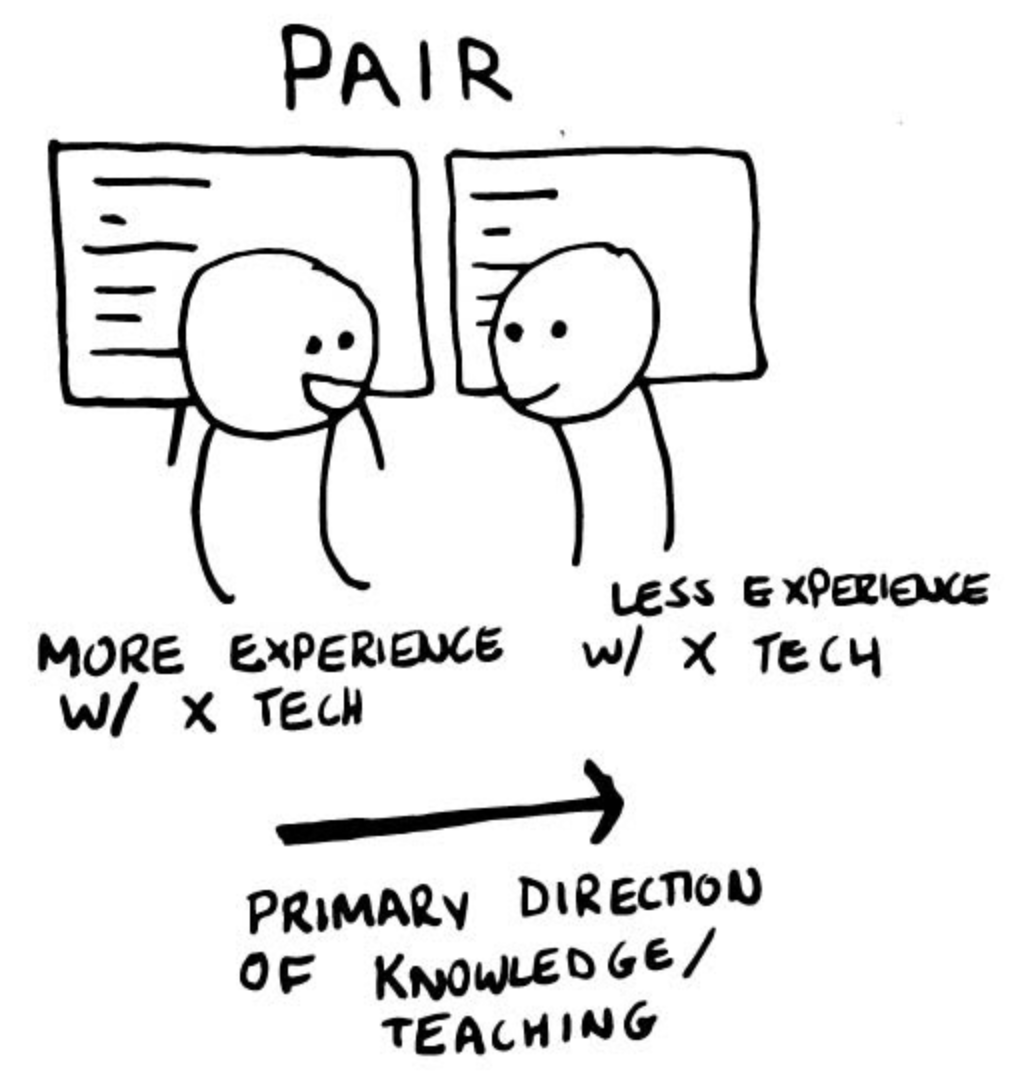 PAIR
LESS EXPERIENCE
W/ X TECH
MORE EXPERIENCE
W/ X TECH
PRIMARY DIRECTION
OF KNOWLEDGE/
TEACHING